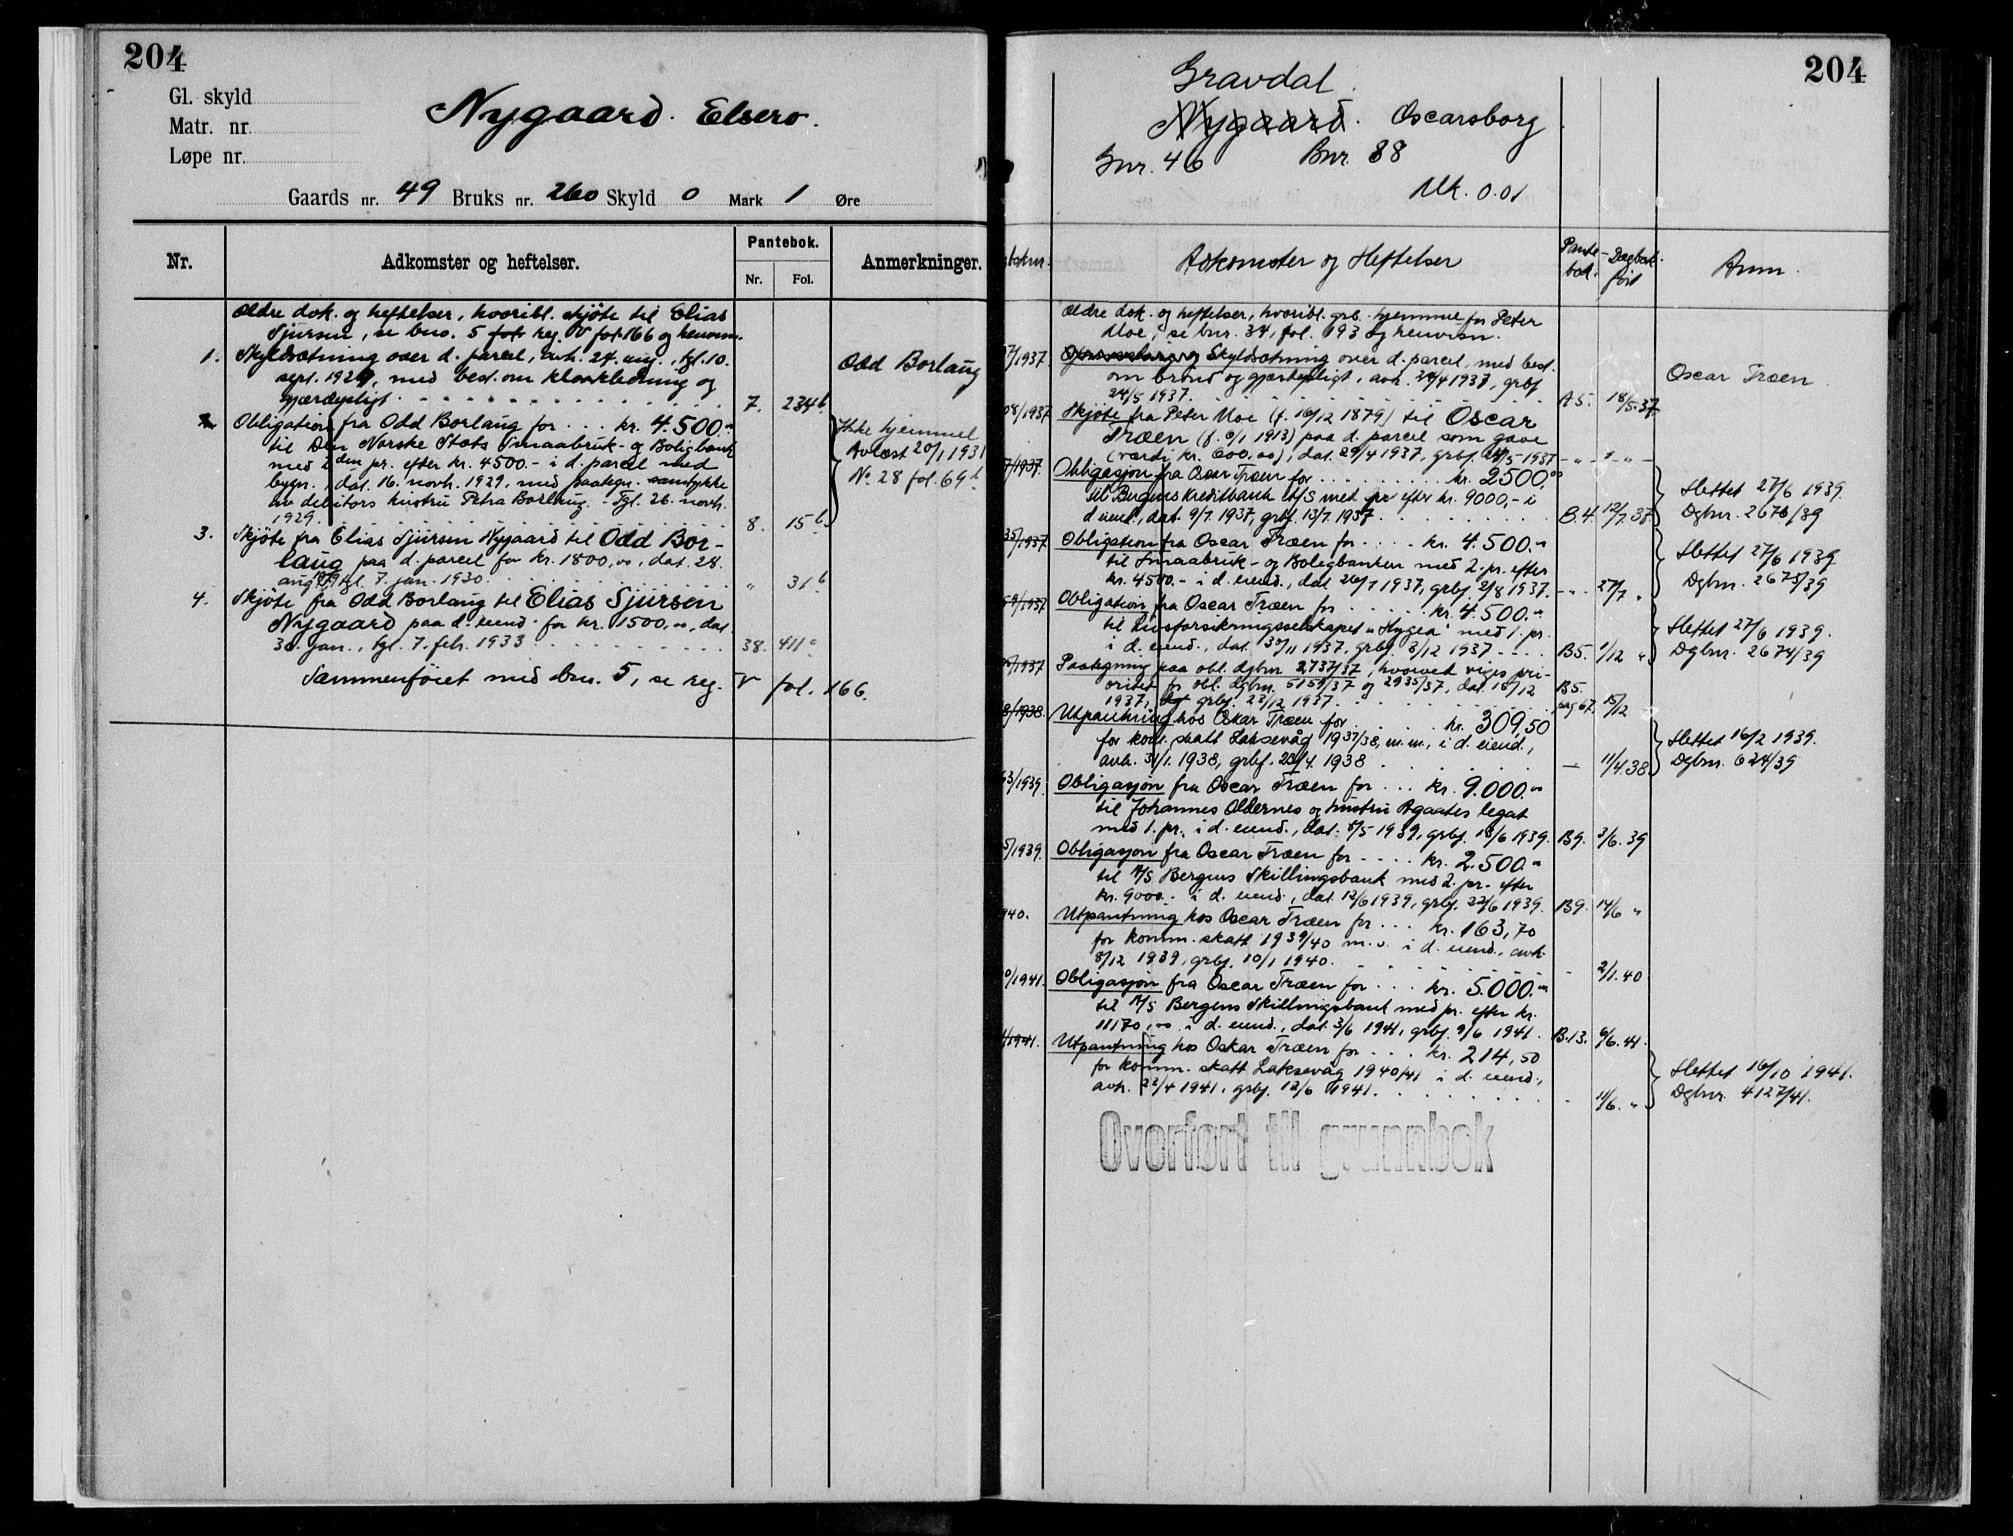 204
Gl. skyld
Matr. nr.
Løpe nr.
Nygaard. Elsero.
Gaards nr. 49 Bruks nr. 260 Skyld 0 Mark 1 Øre
Nr.
Adkomster og heftelser.
Pantebok.
Nr.
Fol.
Anmerkninger.
Ældre dok. og heftelser, hvoribl. skjöte til Elias
Sjursen, se bno. 5 reg. V fol. 166 og henvisn.
1. Skyldsætning over d. parcel, avh. 24. aug., tgl. 10.
sept. 1929, med best. om kloakledning og
gjærdepligt 7. 234b
Odd Borlaug
2. Obligation fra Odd Borlaug for . . . kr. 4.500.-
til Den Norske Stats Smaabruk- og Boligbank
med 1 den pr. efter kr. 4500.- i d. parcel med
bygn., dat. 16. novb. 1929, med paategn. samtykke
av debitors hustru Petra Borlaug. - Tgl. 26. novb.
1929. 8. 15b
Ikke hjemmel
Avlæst 20/1 1931
No 28 fol. 69b
3. Skjöte fra Elias Sjursen Nygaard til Odd Bor-
laug paa d. parcel for kr. 1800,00, dat. 28.
aug. 1929, tgl. 7. jan. 1930. " 31b
4. Skjöte fra Odd Borlaug til Elias Sjursen
Nygaard paa d. eiend. for kr. 1500,00, dat.
30. jan., tgl. 7. feb. 1933 38. 411a
Sammenföiet med bno. 5, se reg. V fol. 166.
204
Gravdal.
Nygaard. Oscarsborg
Gnr. 46 Bnr. 88
Mk. 0.01
Adkomster og Heftelser
Pante-
bok.
Dagbok-
fört
Anm.
Ældre dok. og heftelser, hvoribl. grb. hjemmel for Peter
Moe, se bnr. 34, fol. 193 og henvisn.
/1937 Skyldsætning over d. parcel, med best.
om brönd og gjærdepligt, avh. 24/4 1937, grbf
24/5 1937. A5. 18/5.37
Oscar Træen
08/1937 Skjöte fra Peter Moe (f. 16/12 1879) til Oscar
Træen (f. /1 1913) paa d. parcel som gave
(værdi kr. 600,00), dat. 29/4 1937, grbf. 24/5 1937 - " - " -
7/1937. Obligasjon fra Oscar Træen for kr. 2500,00
til Bergens Kreditbank A/S med pr efter kr. 9000,- i
d. eiend., dat. 9/7. 1937, grbf. 13/7. 1937 B.4. 12/7.37
Slettet 27/6 1939.
Dgbnr. 2676/39
35/1937. Obligation fra Oscar Træen for . . . . kr. 4.500.-
til Smaabruk- og Boligbanken med 2. pr. efter
kr. 4500.- i d. eiend., dat 26/7 1937, grbf. 2/8 1937. - " - 27/7 "
Slettet 27/6 1939
Dgbnr. 2675/39
59/1937 Obligation fra Oscar Træen for . . . . . kr. 4.500.-
til Livsforsikringsselskapet "Hygea" med 1. pr.
i d. eiend., dat. 30/11 1937, grbf. 3/12 1937 B5. 1/12 "
Slettet 27/6 1939.
Dgbnr. 2674/39
/1937 Paategning paa obl. dgbnr. 2737/37, hvorved viges pri-
oritet for obl. dgbnr. 5159/37 og 2935/37, dat. 15/12
1937, grbf. 23/12 1937. B5. pag 67. 15/12
8/1938 Utpantning hos Oskar Træen for . . . . . kr. 309,50
for kom. skatt Laksevåg 1937/38, m.m., i d. eiend.,
avh. 31/1. 1938, grbf. 23/4. 1938 - 11/4.38.
Slettet 16/2 1939.
Dgbnr. 624/39
63/1939. Obligasjon fra Oscar Træen for . . . kr. 9.000.00
til Johannes Oldernes og hustru Agaates legat
med 1. pr. i d. eiend., dat. 8/5 1939, grbf. 13/6 1939. B9. 3/6.39
5/1939. Obligasjon fra Oscar Træen for - . . . kr. 2.500.-
til A/S Bergens Skillingsbank med 2. pr. efter
kr. 9000.- i d. eiend., dat 12/6 1939, grbf. 22/6 1939. B9. 14/6 "
940. Utpantning hos Oscar Træen for . . . kr. 163,70
for komm. skatt 1939/40 m.v. i d. eiend., avh.
8/12 1939, grbf. 10/1 1940. - 2/1.40
0/1941. Obligasjon fra Oscar Træen for . . . kr. 5.000.00
til A/S Bergens Skillingsbank med pr. efter kr.
11170,00 i d. eiend., dat. 3/6 1941, grbf. 9/6 1941. B.13. 6/6.41.
/1941. Utpantning hos Oskar Træen for . . . kr. 214,50
for komm. skatt Laksevåg 1940/41 i d. eiend.,
avh. 22/4 1941, grbf. 12/6 1941. - 11/6. "
Slettet 16/10 1941.
Dgbnr. 4127/41.
Overført til grunnbok